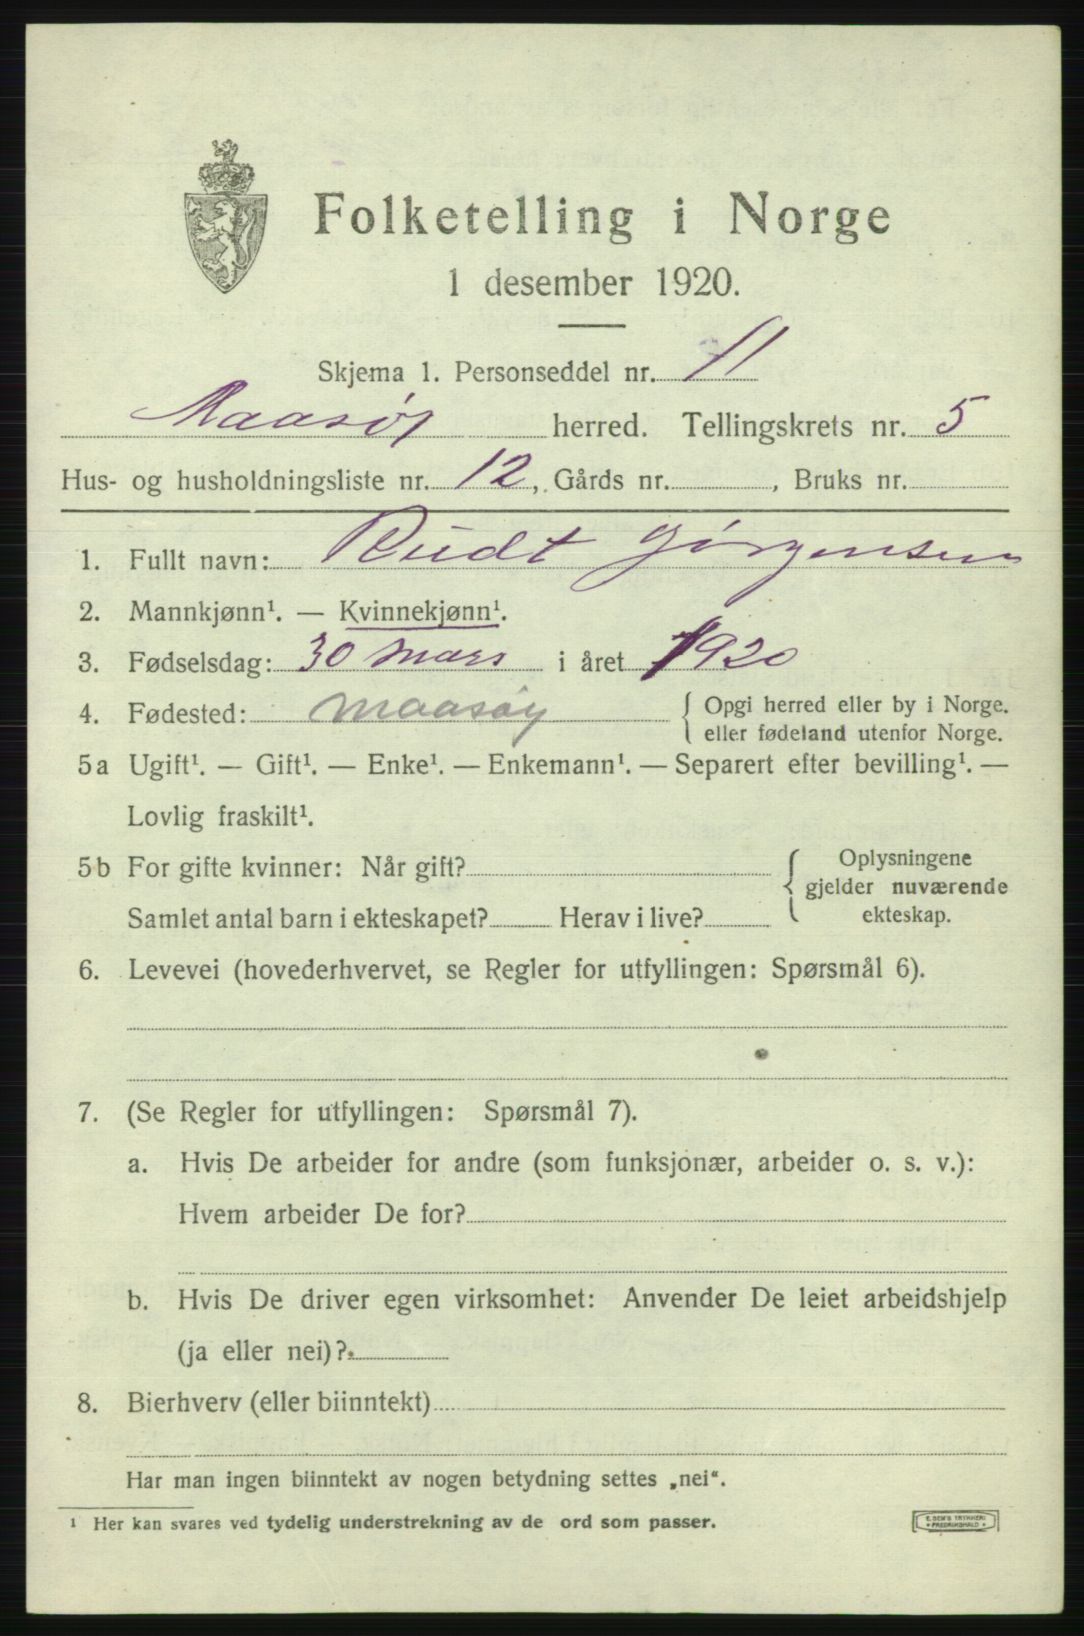 Folketelling i Norge
1 desember 1920.
Skjema 1. Personseddel nr. 11
Maasøy herred. Tellingskrets nr. 5
Hus- og husholdningsliste nr. 12, Gårds nr. , Bruks nr.
1. Fullt navn: Rudt Jørgensen
2. Mannkjønn¹. — Kvinnekjønn¹.
3. Fødselsdag: 30 mars i året 1920
4. Fødested: Maasøy { Opgi herred eller by i Norge.
eller fødeland utenfor Norge.
5a Ugift¹. — Gift¹. — Enke¹. — Enkemann¹. — Separert efter bevilling¹. —
Lovlig fraskilt¹.
5b For gifte kvinner: Når gift? { Oplysningene
gjelder nuværende
Samlet antal barn i ekteskapet? Herav i live? ekteskap.
6. Levevei (hovederhvervet, se Regler for utfyllingen: Spørsmål 6).
7. (Se Regler for utfyllingen: Spørsmål 7).
a. Hvis De arbeider for andre (som funksjonær, arbeider o. s. v.):
Hvem arbeider De for?
b. Hvis De driver egen virksomhet: Anvender De leiet arbeidshjelp
(ja eller nei)?
8. Bierhverv (eller biinntekt)
Har man ingen biinntekt av nogen betydning settes „nei“.
¹ Her kan svares ved tydelig understrekning av de ord som passer.
E. SEM'S TRYKKERI
FREDRIKSHALD